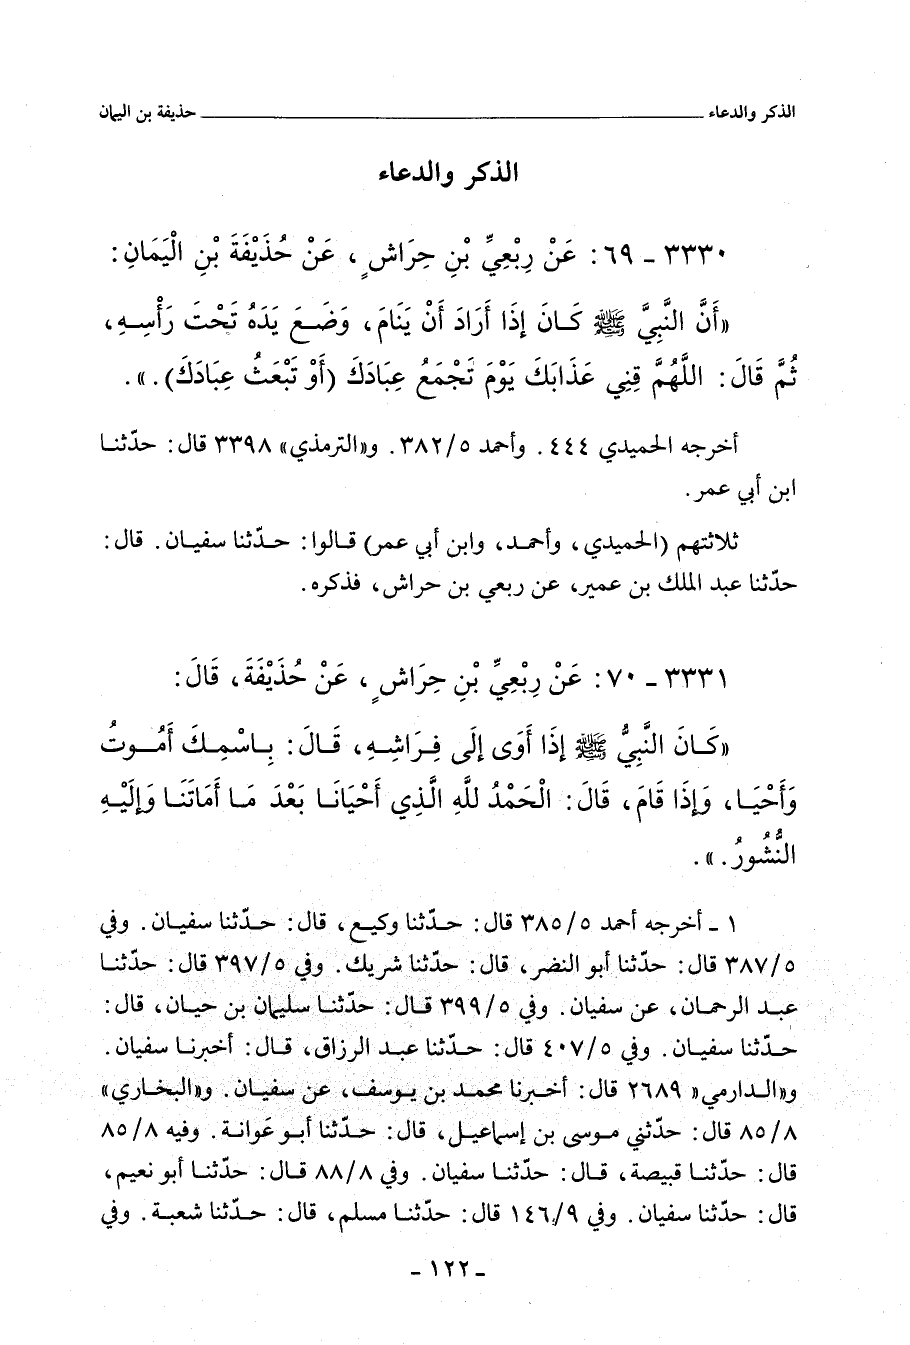 الذكر والدعاء ـــــــــــــــــ حذيفة بن اليمان
الذكر والدعاء
٣٣٣٠ - ٦٩: عَنْ رِبْعِيِّ بْنِ حِرَاشٍ، عَنْ حُذَيْفَةَ بْنِ الْيَمَانِ:
«أَنَّ النَّبِيَّ ﷺ كَانَ إِذَا أَرَادَ أَنْ يَنَامَ، وَضَعَ يَدَهُ تَحْتَ رَأْسِهِ،
ثُمَّ قَالَ: اللَّهُمَّ قِنِي عَذَابَكَ يَوْمَ تَجْمَعُ عِبَادَكَ (أَوْ تَبْعَثُ عِبَادَكَ).».
أخرجه الحميدي ٤٤٤. وأحمد ٣٨٢/٥. و«الترمذي» ٣٣٩٨ قال: حدّثنا
ابن أبي عمر.
ثلاثتهم (الحميدي، وأحمد، وابن أبي عمر) قالوا: حدّثنا سفيان. قال:
حدّثنا عبد الملك بن عمير، عن ربعي بن حراش، فذكره.
٣٣٣١ - ٧٠: عَنْ رِبْعِيِّ بْنِ حِرَاشٍ، عَنْ حُذَيْفَةَ، قَالَ:
«كَانَ النَّبِيُّ ﷺ إِذَا أَوَى إِلَى فِرَاشِهِ، قَالَ: بِاسْمِكَ أَمُوتُ
وَأَحْيَا، وَإِذَا قَامَ، قَالَ: الْحَمْدُ للهِ الَّذِي أَحْيَانَا بَعْدَ مَا أَمَاتَنَا وَإِلَيْهِ
النُّشُورُ.».
١ - أخرجه أحمد ٣٨٥/٥ قال: حدّثنا وكيع، قال: حدّثنا سفيان. وفي
٣٨٧/٥ قال: حدّثنا أبو النضر، قال: حدّثنا شريك. وفي ٣٩٧/٥ قال: حدّثنا
عبد الرحمان، عن سفيان. وفي ٣٩٩/٥ قال: حدّثنا سليمان بن حيان، قال:
حدّثنا سفيان. وفي ٤٠٧/٥ قال: حدّثنا عبد الرزاق، قال: أخبرنا سفيان.
و«الدارمي» ٢٦٨٩ قال: أخبرنا محمد بن يوسف، عن سفيان. و«البخاري»
٨٥/٨ قال: حدّثني موسى بن إسماعيل، قال: حدّثنا أبو عَوانة. وفيه ٨٥/٨
قال: حدّثنا قبيصة، قال: حدّثنا سفيان. وفي ٨٨/٨ قال: حدّثنا أبو نعيم،
قال: حدّثنا سفيان. وفي ١٤٦/٩ قال: حدّثنا مسلم، قال: حدّثنا شعبة. وفي
- ١٢٢ -